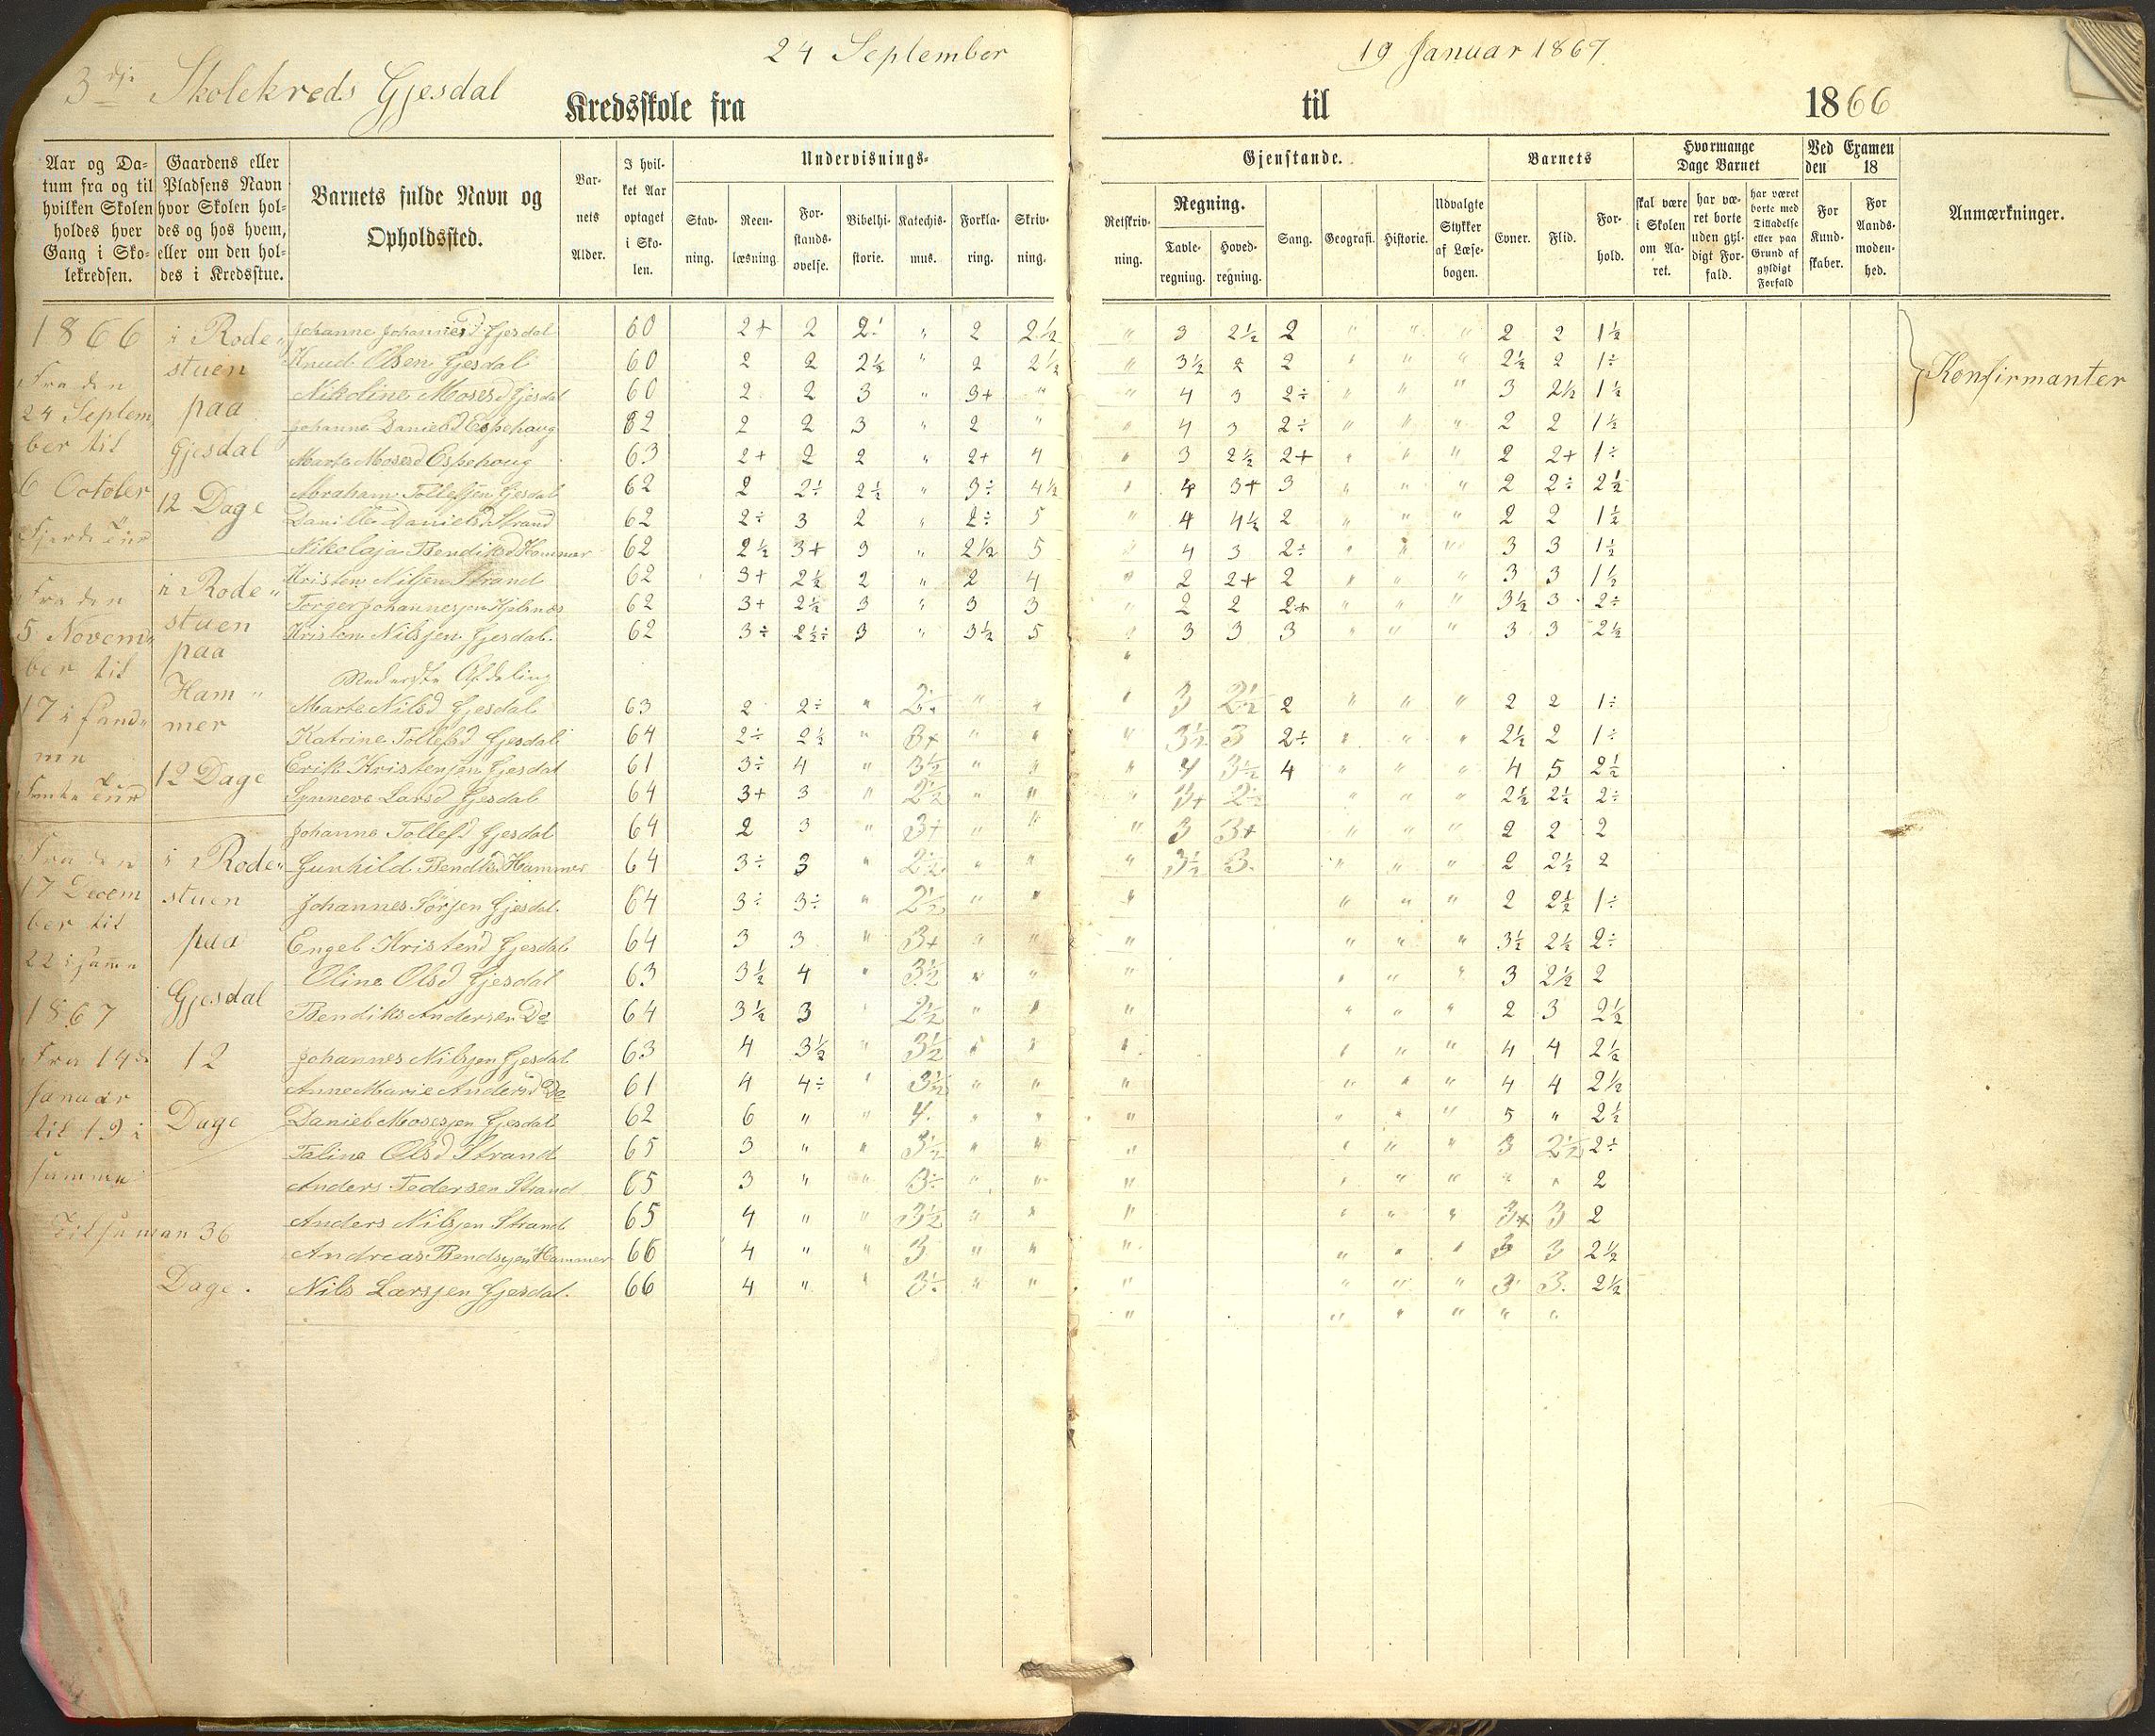 24 September
19 Januar 1867.
3die Skolekreds Gjesdal
Kredsskole fra
til
1866
Aar og Da-
tum fra og til
hvilken Skolen
holdes hver
Gang i Sko-
lekredsen.
Gaardens eller
Pladsens Navn
hvor Skolen hol-
des og hos hvem,
eller om den hol-
des i Kredsstue.
Barnets fulde Navn og
Opholdssted.
Bar-
nets
Alder.
I hvil-
ket Aar
optaget
i Sko-
len.
Undervisnings-
Stav-
ning.
Reen-
læsning.
For-
stands-
øvelse.
Bibelhi-
storie.
Katechis-
mus.
Forkla-
ring.
Skriv-
ning.
Gjenstande.
Retskriv-
ning.
Regning.
Tavle-
regning.
Hoved-
regning.
Sang.
Geografi.
Historie.
Udvalgte
Stykker
af Læse-
bogen.
Barnets
Evner.
Flid.
For-
hold.
Hvormange
Dage Barnet
skal være
i Skolen
om Aa-
ret.
har væ-
ret borte
uden gyl-
digt For-
fald.
har været
borte med
Tilladelse
eller paa
Grund af
gyldigt
Forfald
Ved Examen
den 18
For
Kund-
skaber.
For
Aands-
moden-
hed.
Anmærkninger.
1866
Fra den
24 Septem
ber til
6 October
Fra den
5 Novem"
ber til
17 i samme
Fra den
17 Decem
ber til
22 i samme
1867
Fra 14de
Januar
til 19 i
samme
Tilsammen 36
Dage.
i Rode"
stuen
paa
Gjesdal
12 Dage
i Rode"
stuen
paa
Ham"
mer
12 Dage
i Rode"
stuen
paa
Gjesdal
12
Dage
Johanne Johannesd Gjesdal 60 2+ 2 2! " 2 2½ " 3 2½ 2 " " " 2 2 1½
Knud Olsen Gjesdal 60 2 2 2½ " 2 2½ " 3½ 2 2 " " " 2½ 2 1÷
Nikoline Mosesd Gjesdal 60 2 2 3 " 3+ " " 4 3 2÷ " " " 3 2½ 1½
Johanne Danielsd Espehaug 62 2 2 3 " 2 " " 4 3 2÷ " " " 2 2 1½
Marte Mosesd Espehoug 63 2+ 2 2 " 2+ 4 " 3 2½ 2+ " " " 2 2+ 1÷
Abraham Tollefsen Gjesdal 62 2 2÷ 2½ " 3÷ 4½ " 4 3+ 3 " " " 2 2÷ 2½
Danille Danielsd Strand 62 2÷ 3 2 " 2÷ 5 " 4 4½ 2 " " " 2 2 1½
Nikolaja Bendiksd Hammer 62 2½ 3+ 3 " 2½ 5 " 4 3 2÷ " " " 3 3 1½
Kristen Nilsen Strand 62 3+ 2½ 2 " 2 4 " 2 2+ 2 " " " 3 3 1½
Torger Johannesen 62 3+ 2½ 3 " 3 3 " 2 2 2+ " " " 3½ 3 2÷
Kristen Nilsen Gjesdal. 62 3÷ 2½÷ 3 " 3½ 5 " 3 3 3 " " " 3 3 2½
Nederste Afdeling
Marte Nilsd Gjesdal 63 2 2÷ " 2÷ " " " 3 2½ 2 " " " 2 2 1÷
Katrine Tollefsd Gjesdal 64 2÷ 2½ " 3+ " " " 3½ 3 2÷ " " " 2½ 2 1÷
Erik Kristensen Gjesdal 61 3÷ 4 " 3½ " " " 4 3½ 4 " " " 4 5 2½
Synneve Larsd Gjesdal 64 3+ 3 " 2½ " " " 3+ 2½ " " " 2½ 2½ 2÷
Johanne Tollefsd Gjesdal 64 2 3 " 3+ " " " 3 3+ " " " 2 2 2
Gunhild Bendiksd Hammer 64 3÷ 3 " 2½ " " " 3½ 3. " " " 2 2½ 2
Johannes Törsen Gjesdal. 64 3÷ 3÷ " 2½ " " " " " " 2 2½ 1÷
Engel Kristensd Gjesdal 64 3 3 " 3+ " " " " " " 3½ 2½ 2÷
Oline Olsd Gjesdal 63 3½ 4 " 3½ " " " " " " 3 2½ 2
Bendiks Andersen Do 64 3½ 3 " 2½ " " " " " " 2 3 2½
Johannes Nilsen Gjesdal 63 4 3½ " 3½ " " " " " " 4 4 2½
Anne Marie Andersd Do 61 4 4÷ " 3½ " " " " " " 4 4 2½
Daniel Mosesen Gjesdal 62 6 " " 4. " " " " " " 5 " 2½
Taline Olsd Strand 65 3 " " 3½ " " " " " " 3 2½ 2÷
Anders Pedersen Strand 65 3 " " 3÷ " " " " " " " " 2
Anders Nilsen Strand 65 4 " " 3½ " " " " " " 3+ 3 2
Andreas Hammer 66 4 " " 3 " " " " " " 3 3 2½
Nils Larsen Gjesdal. 66 4 " " 3÷ " " " " " " 3 3. 2½
" " " " " "
Konfirmanter